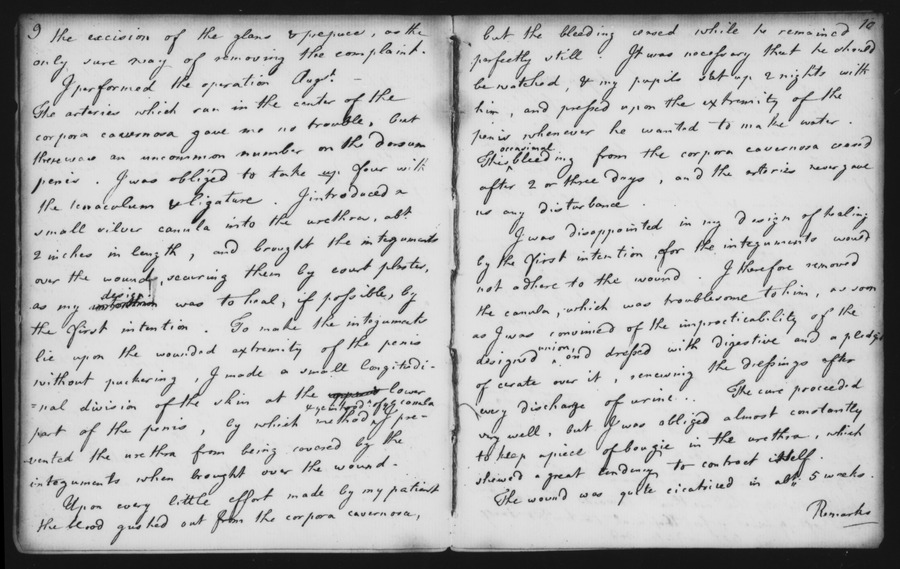 9
the excision of the glans & prepuce, as the
only sure way of removing the complaint.
I performed the operation Augt. —
The arteries which ran in the center of the
corpora cavernosa gave me no trouble, but
there was an uncommon number on the dorsum
penis. I was obliged to take up four with
the tenaculum & ligature. I introduced a
small silver canula into the urethra, abt
2 inches in length, and brought the integuments
over the wound, securing them by court plaster,
design
as my was to heal, if possible, by
the first intention. To make the integuments
lie upon the wounded extremity of the penis
without puckering, I made a small longitudi-
=nal division of the skin at the lower
& ye introdn of ye canula
part of the penis, by which method I pre-
vented the urethra from being covered by the
integuments when brought over the wound.
Upon every little effort made by my patient
the blood gushed out from the corpora cavernosa,
10
but the bleeding ceased while he remained
perfectly still. It was necessary that he should
be watched, & my pupils sat up 2 nights with
him, and pressed upon the extremity of the
penis whenever he wanted to make water.
occasional
This bleeding from the corpora cavernosa ceased
after 2 or three days, and the arteries never gave
us any disturbance.
I was disappointed in my design of healing
by the first intention, for the integuments would
not adhere to the wound. I therefore removed
the canula, which was troublesome to him as soon
as I was convinced of the impracticability of the
union
designed , and dressed with digestive and a pledgit
of cerate over it, renewing the dressings after
every discharge of urine. The cure proceeded
very well, but I was obliged almost constantly
to keep a piece of bougie in the urethra, which
shewed a great tendency to contract itself.
The wound was quite cicatrised in abt. 5 weeks.
Remarks